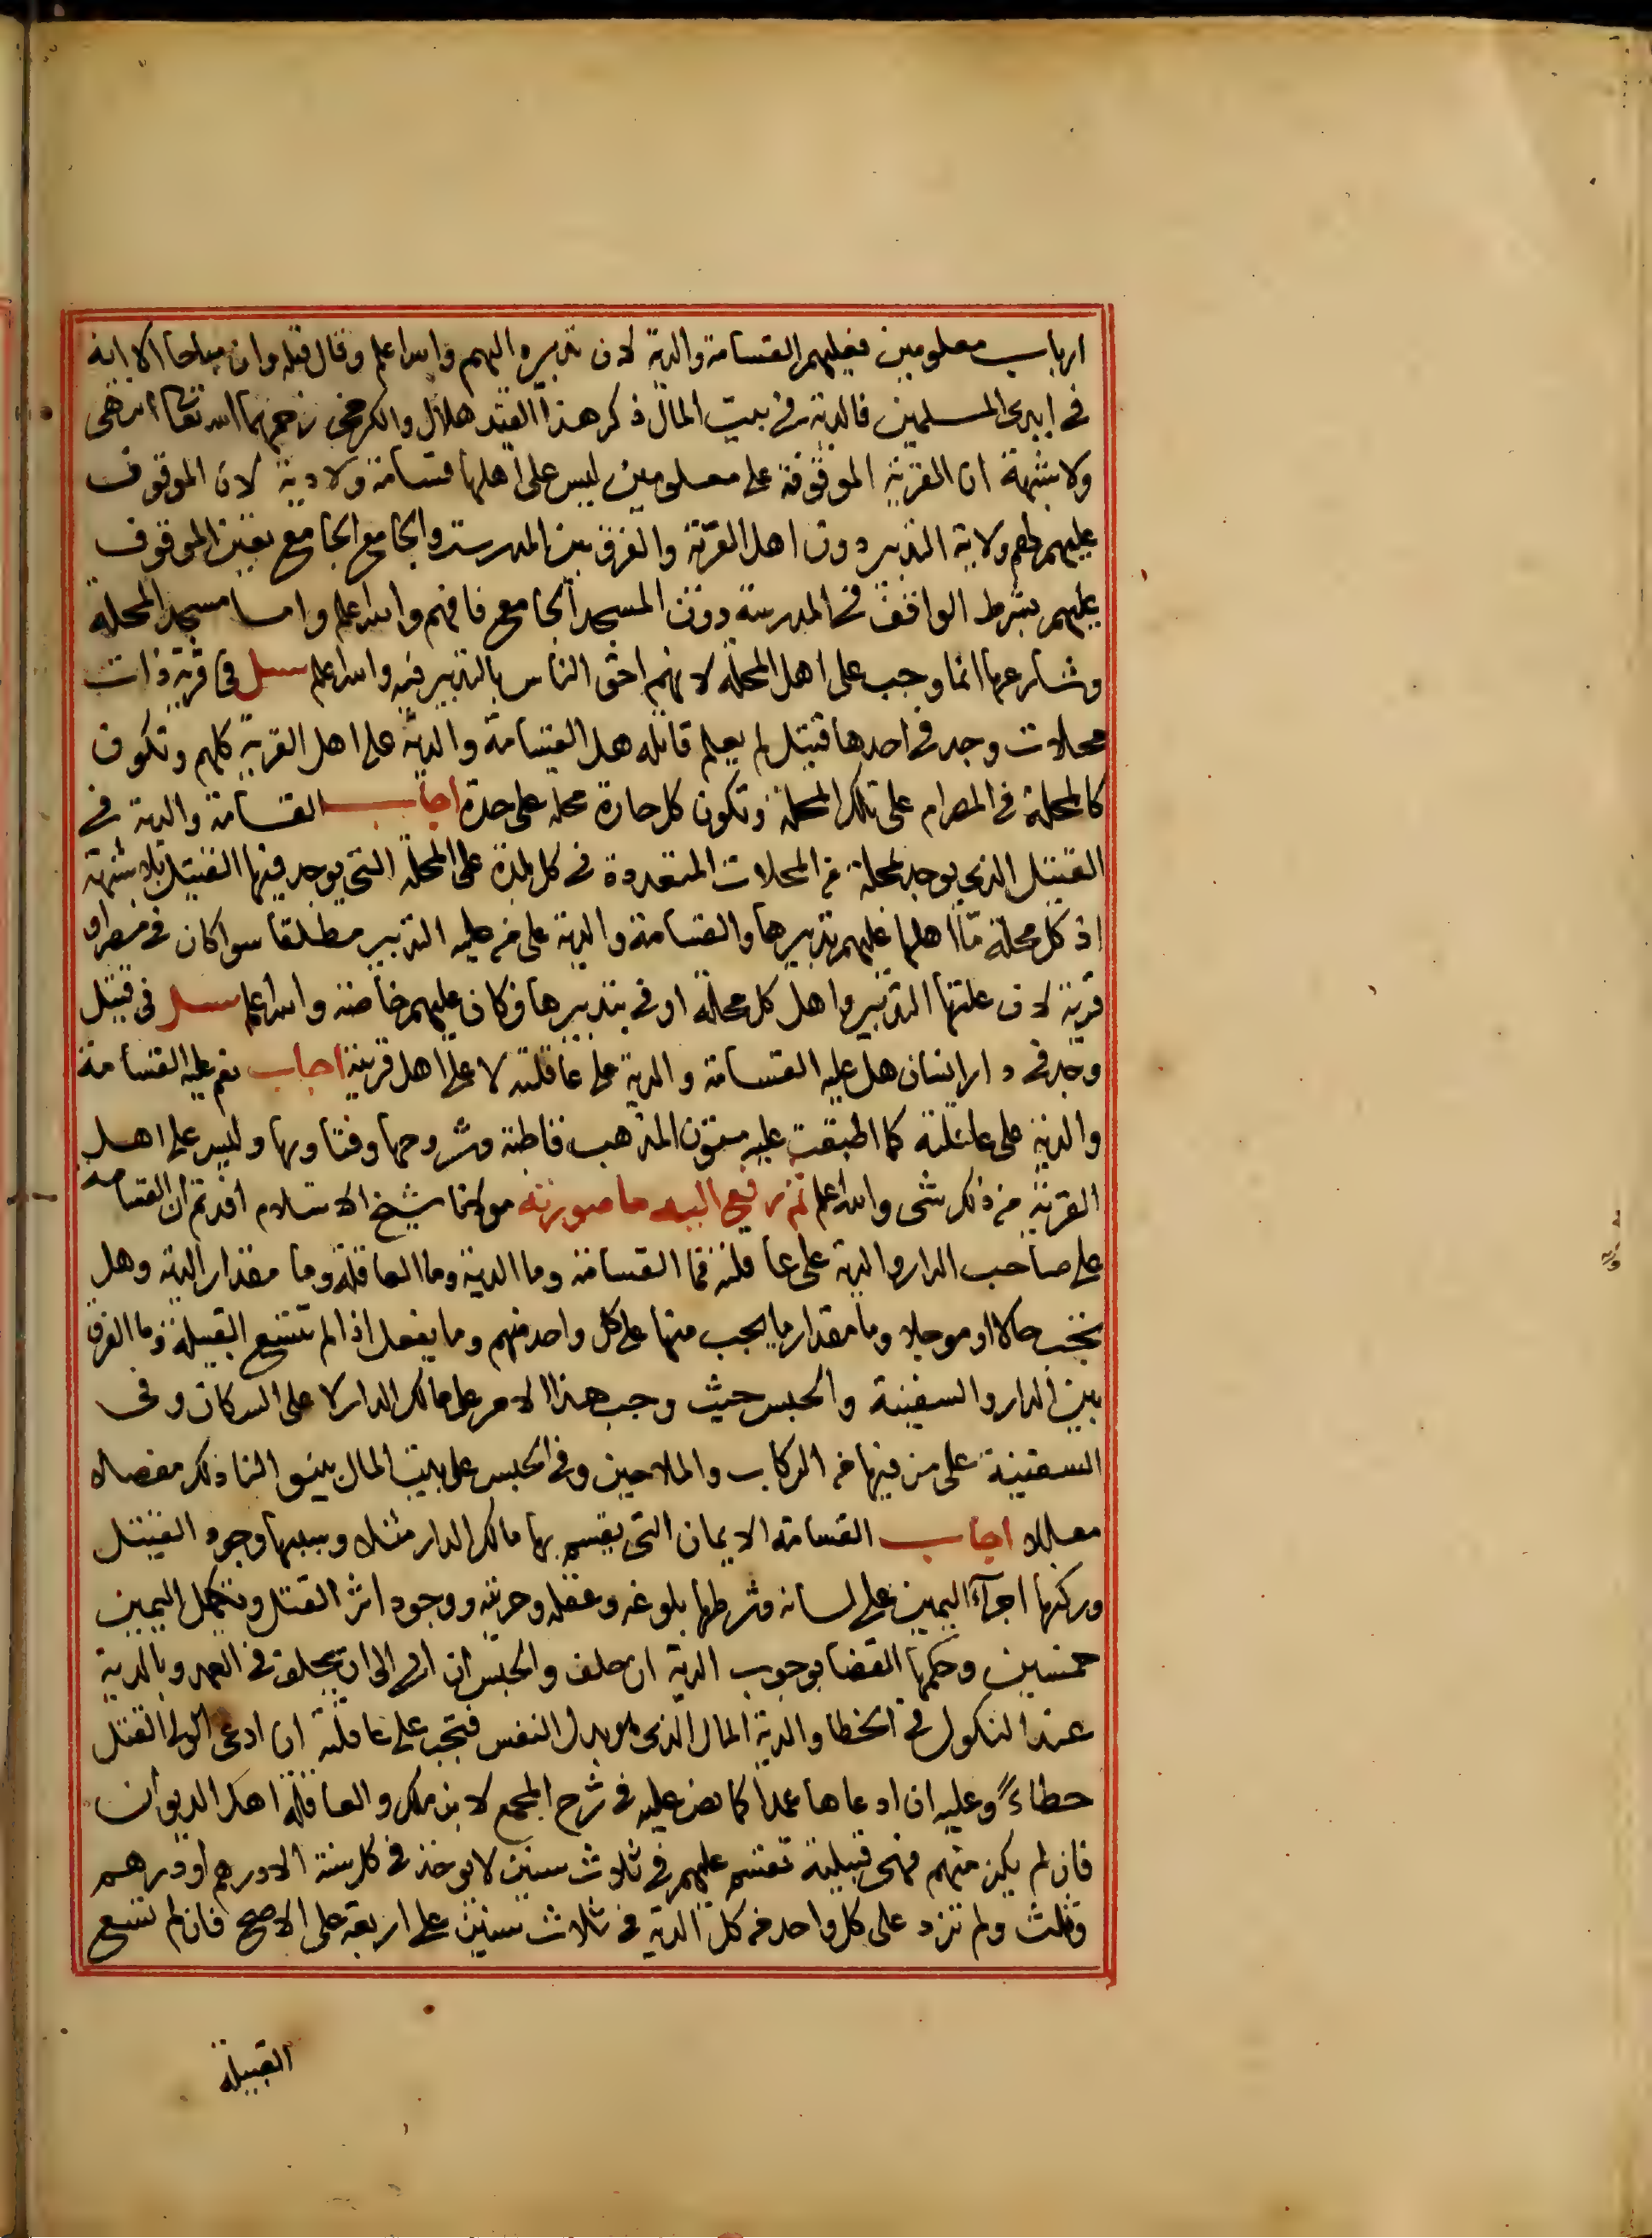 ارباب معلومين فعليهم القسامة والدية لان تدبيره اليهم والله اعلم وقال قبله وان مباحا الا انه
في ايدى المسلمين فالدية في بيت المال ذكر هذا القيد هلال والكرخى رحمهما الله تعا انتهى
ولا شبهة ان القرية الموقوفة على معلومين ليس على اهلها قسامة ولا دية لان الموقوف
عليهم لهم ولاية التدبير دون اهل القرية والفرق بين المدرسة والجامع الجامع تعين الموقوف
عليهم بشرط الواقف في المدرسة دون المسجد الجامع فافهم والله اعلم واما مسجد المحلة
وشارعها انما وجب على اهل المحلة لانهم احق الناس بالتدبير فيه والله اعلم سئل في قرية ذات
محلات وجد في احدها قتيل لم يعلم قاتله هل القسامة والدية على اهل القرية كلهم وتكون
كالمحلة في المصر ام على تلك المحلة وتكون كل حارة محلة على حدة اجاب القسامة والدية في
القتيل الذى يوجد بمحلة من المحلات المتعددة في كل بلدة على المحلة التى يوجد فيها القتيل بلا شبهة
اذ كل محلة اهلها عليهم تدبيرها والقسامة والدية على من عليه التدبير مطلقا سوا كان في مصر او
قرية لان علتها التدبير واهل كل محلة اوفى بتدبيرها فكان عليهم خاصة والله اعلم سئل في قتيل
وجد في دار انسان هل عليه القسامة والدية على عاقلته لا على اهل قريته اجاب نعم عليه القسامة
والدية على عاقلته كما اطبقت عليه متون المذهب قاطبة وشروحها وفتاويها وليس على اهل
القرية من ذلك شى والله اعلم ثم رفع اليه ما صورته مولانا شيخ الاسلام افدتم ان القسامه
على صاحب الدار والدية على عاقلته فما القسامة وما الدية وما العاقلة وما مقدار الدية وهل
تجب حالا او موجلا وما مقدار ما يجب منها على كل واحد منهم وما يفعل اذا لم تتسع القبيلة وما الفرق
بين الدار والسفينة والحبس حيث وجب هذا الامر على مالك الدار لا على السكان وفى
السفينة على من فيها من الركاب والملاحين وفي الحبس على بيت المال بينوا لنا ذلك مفصلا
معللا اجاب القسامة الايمان التى يقسم بها مالك الدار مثلا وسببها وجود القتيل
وركنها اجرآء اليمين على لسانه وشرطها بلوغه وعقله وحريته ووجود اثر القتل وتكمل اليمين
خمسين وحكمها القضا بوجوب الدية ان حلف والحبس ان ابى الى ان يحلف في العمد وبالدية
عند النكول في الخطا والدية المال الذى هو بدل النفس فتجب على عاقلته ان ادعى الولى القتل
خطاءً وعليه ان ادعاها عمدا كما نص عليه في شرح المجمع لابن ملك والعاقلة اهل الديوان
فان لم يكن منهم فهى قبيلته تقسم عليهم في ثلاث سنين لا يوخذ في كل سنة الا درهم او درهم
وثلث ولم تزد على كل واحد من كل الدية في ثلاث سنين على اربعة على الاصح فان لم تتسع
القبيلة